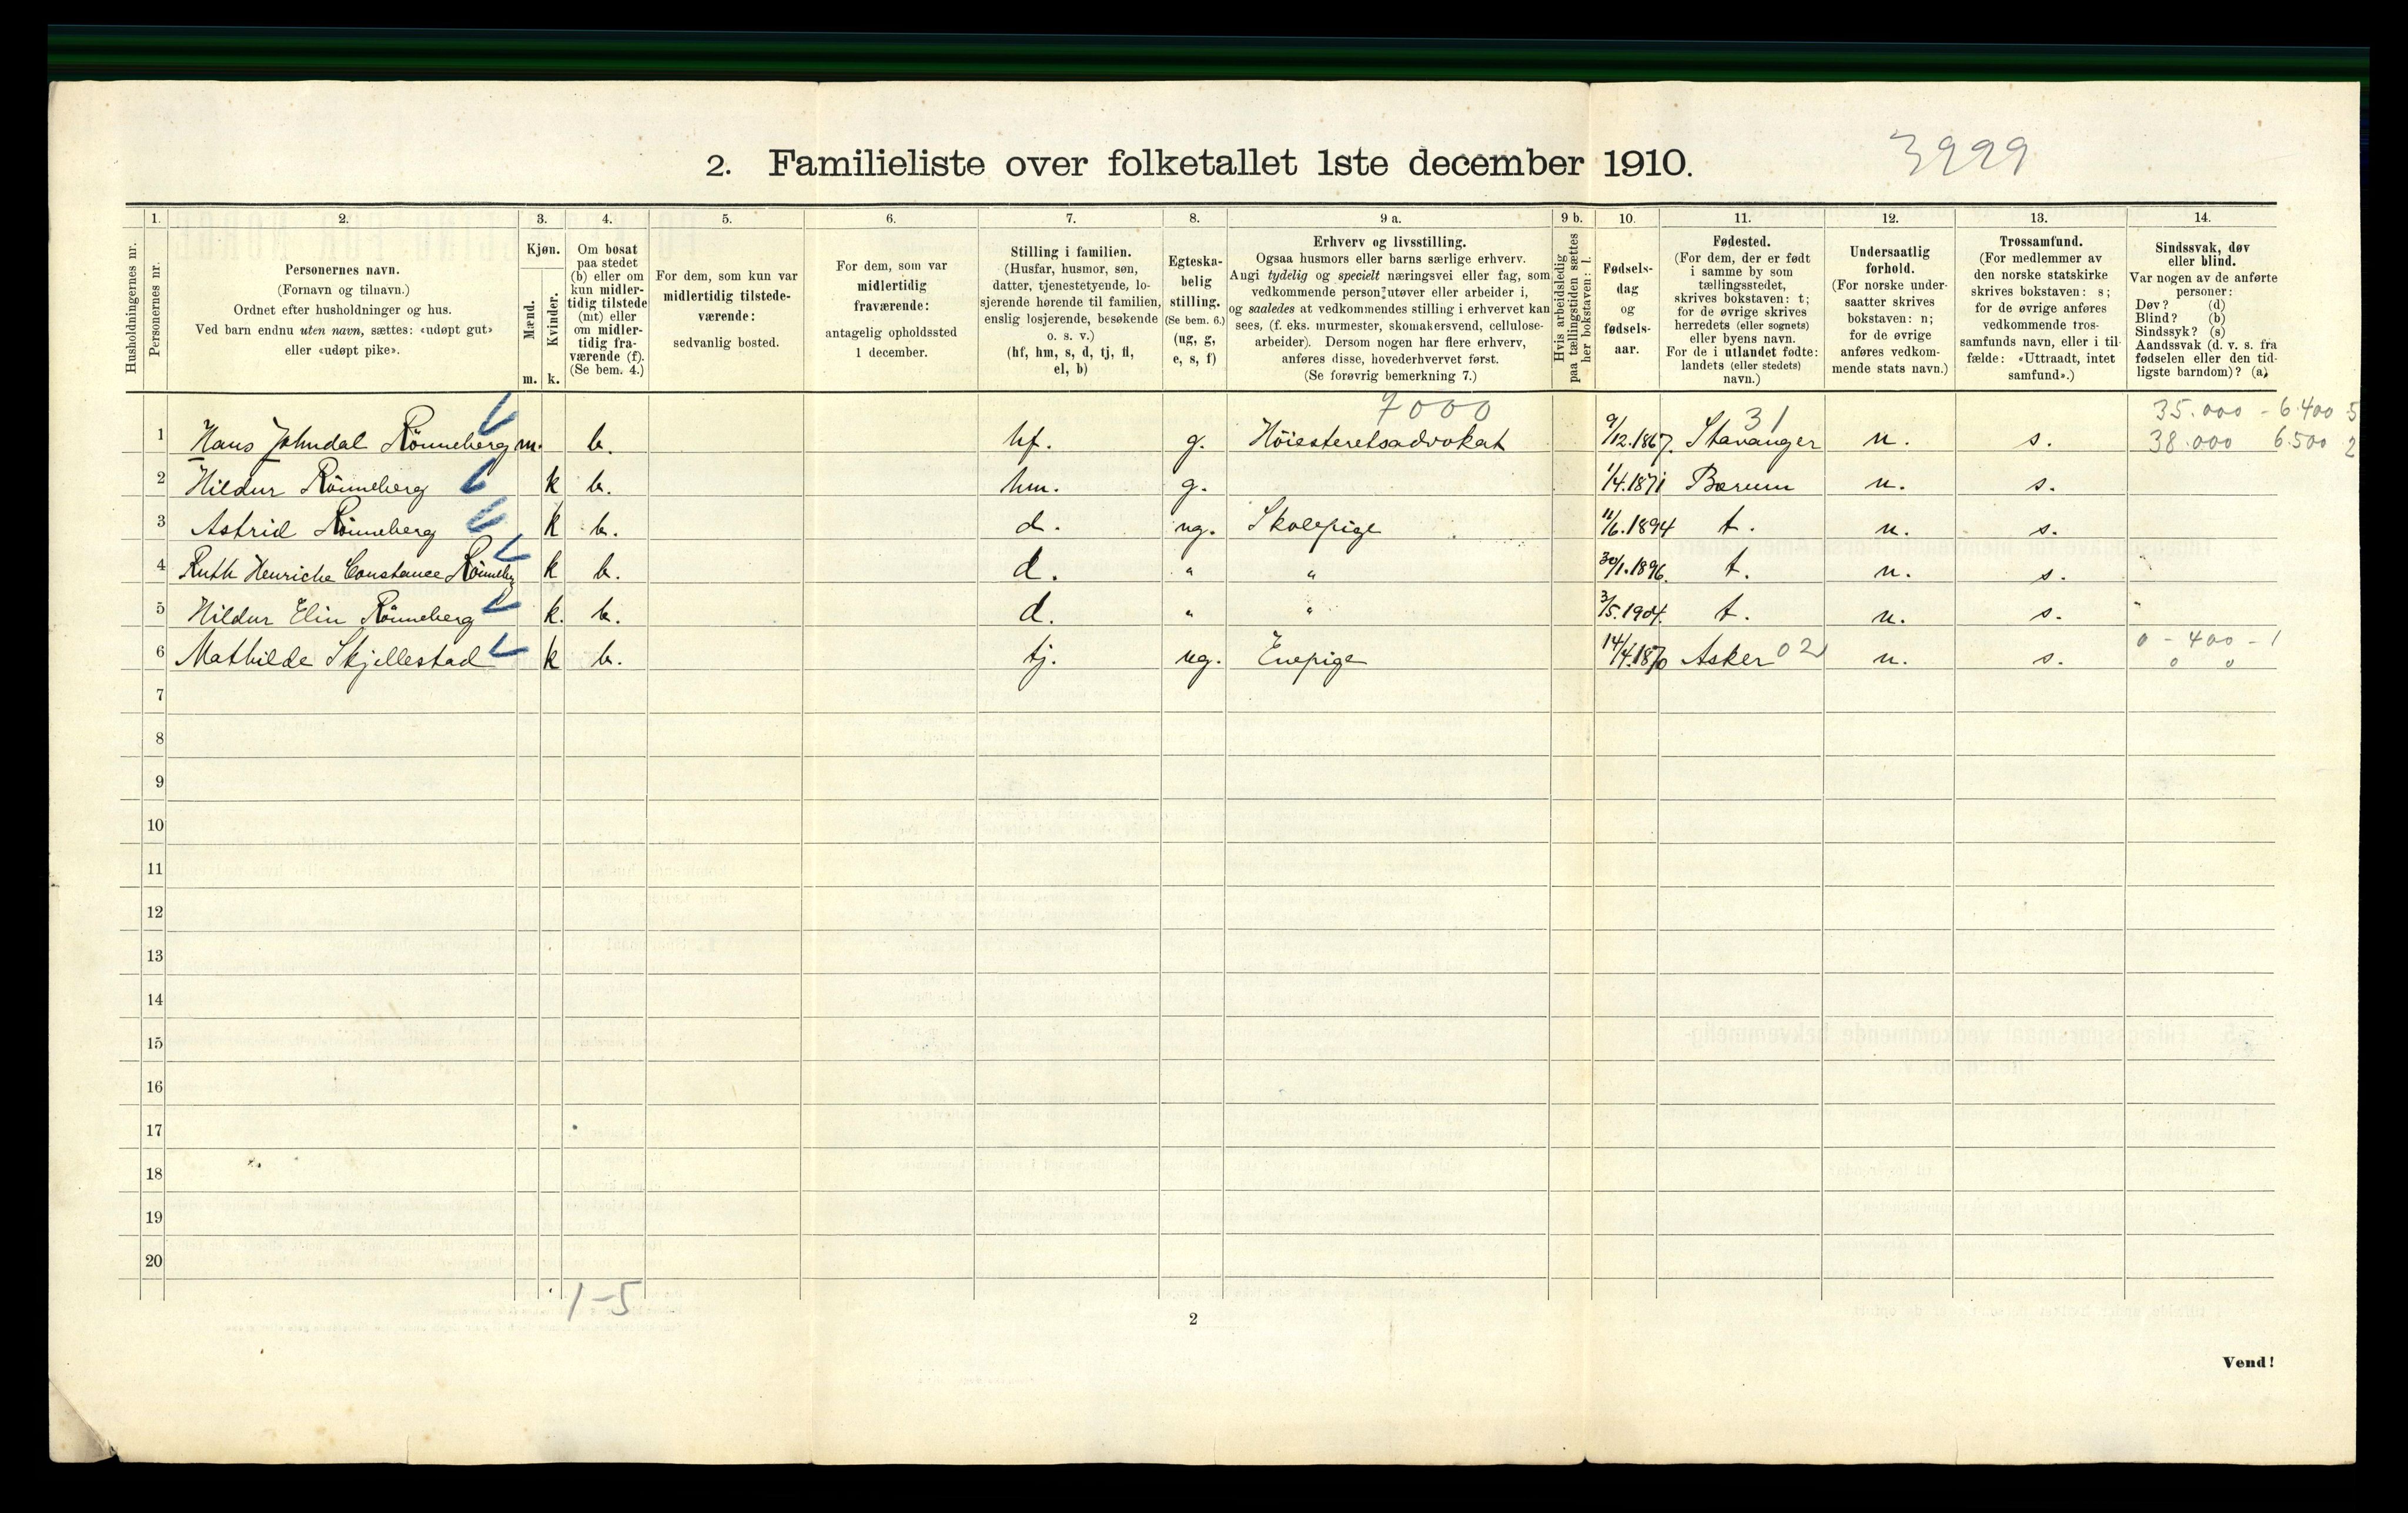 3999
2. Familieliste over folketallet 1ste december 1910.
1. 2. 3. 4. 5. 6. 7. 8. 9 a. 9 b. 10. 11. 12. 13. 14.
Husholdningernes nr.
Personernes nr.
Personernes navn.
(Fornavn og tilnavn.)
Ordnet efter husholdninger og hus.
Ved barn endnu uten navn, sættes: «udøpt gut»
eller «udøpt pike».
Kjøn.
Mænd.
m.
Kvinder.
k.
Om bosat
paa stedet
(b) eller om
kun midler-
tidig tilstede
(mt) eller
om midler-
tidig fra-
værende (f).
(Se bem. 4.)
For dem, som kun var
midlertidig tilstede-
værende:
sedvanlig bosted.
For dem, som var
midlertidig
fraværende:
antagelig opholdssted
1 december.
Stilling i familien.
(Husfar, husmor, søn,
datter, tjenestetyende, lo-
sjerende hørende til familien,
enslig losjerende, besøkende
o. s. v.)
(hf, hm, s, d, tj, fl,
el, b)
Egteska-
belig
stilling.
(Se bem. 6.)
(ug, g,
e, s, f)
Erhverv og livsstilling.
Ogsaa husmors eller barns særlige erhverv.
Angi tydelig og specielt næringsvei eller fag, som
vedkommende person utøver eller arbeider i,
og saaledes at vedkommendes stilling i erhvervet kan
sees, (f. eks. murmester, skomakersvend, cellulose-
arbeider). Dersom nogen har flere erhverv,
anføres disse, hovederhvervet først.
(Se forøvrig bemerkning 7.)
Hvis arbeidsledig
paa tællingstiden sættes
her bokstaven: l.
Fødsels-
dag
og
fødsels-
aar.
Fødested.
(For dem, der er født
i samme by som
tællingsstedet,
skrives bokstaven: t;
for de øvrige skrives
herredets (eller sognets)
eller byens navn.
For de i utlandet fødte:
landets (eller stedets)
navn.)
Undersaatlig
forhold.
(For norske under-
saatter skrives
bokstaven: n;
for de øvrige
anføres vedkom-
mende stats navn.)
Trossamfund.
(For medlemmer av
den norske statskirke
skrives bokstaven: s;
for de øvrige anføres
vedkommende tros-
samfunds navn, eller i til-
fælde: «Uttraadt, intet
samfund».)
Sindssvak, døv
eller blind.
Var nogen av de anførte
personer:
Døv? (d)
Blind? (b)
Sindssyk? (s)
Aandssvak (d. v. s. fra
fødselen eller den tid-
ligste barndom)? (a)
7000 31 35.000 - 6.400 5
1 Hans Johndal Rönneberg m. b. hf. g. Höiesteretsadvokat 9/12.1867. Stavanger n. s. 38.000 6.500 2
2 Hildur Rönneberg k b. hm. g. 1/4.1871 Bærum n. s.
3 Astrid Rönneberg k b. d. ug. Skolepige 11/6.1894 t. n. s.
4 Ruth Henriche Constance Rönneberg k b. d. " " 30/1.1896. t. n. s.
5 Hildur Elin Rönneberg k. b. d. " " 3/5.1904. t. n. s.
6 Mathilde Skjellestad k b. tj. ug. Enepige 14/4.1870 Asker 02 n. s. 0 - 400 - 1
0 0
7
8
9
10
11
12
13
14
15
16
17
18
19
20
1-5
2
Vend!